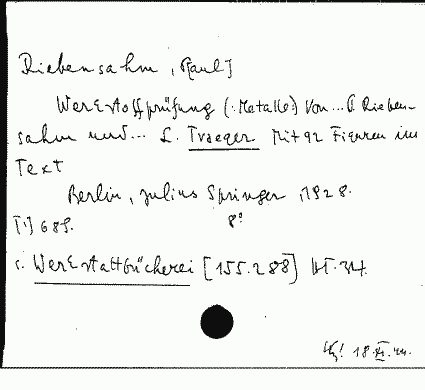 Riebensahm, Paul]
Werkstoffprüfung (:Metalle:) von... P. Rieben-
sahm und... L. Traeger Mit 92 Figuren im
Text
Berlin, Julius Springer, 1928.
[1] 68 S. 8°
s. Werkstattbücherei [155.288] Hft. 34.
18.XI.44.